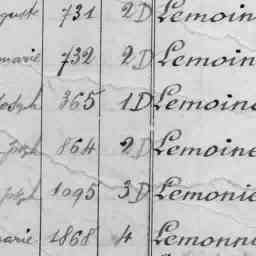 guste 731 2 D Lemoin
marie 732 2 D Lemoin
Joseph 365 1 D Lemoine
Joseph 864 2 D Lemoine
Joseph 1095 3 D Lemonie
marie 1868 4 Lemonn